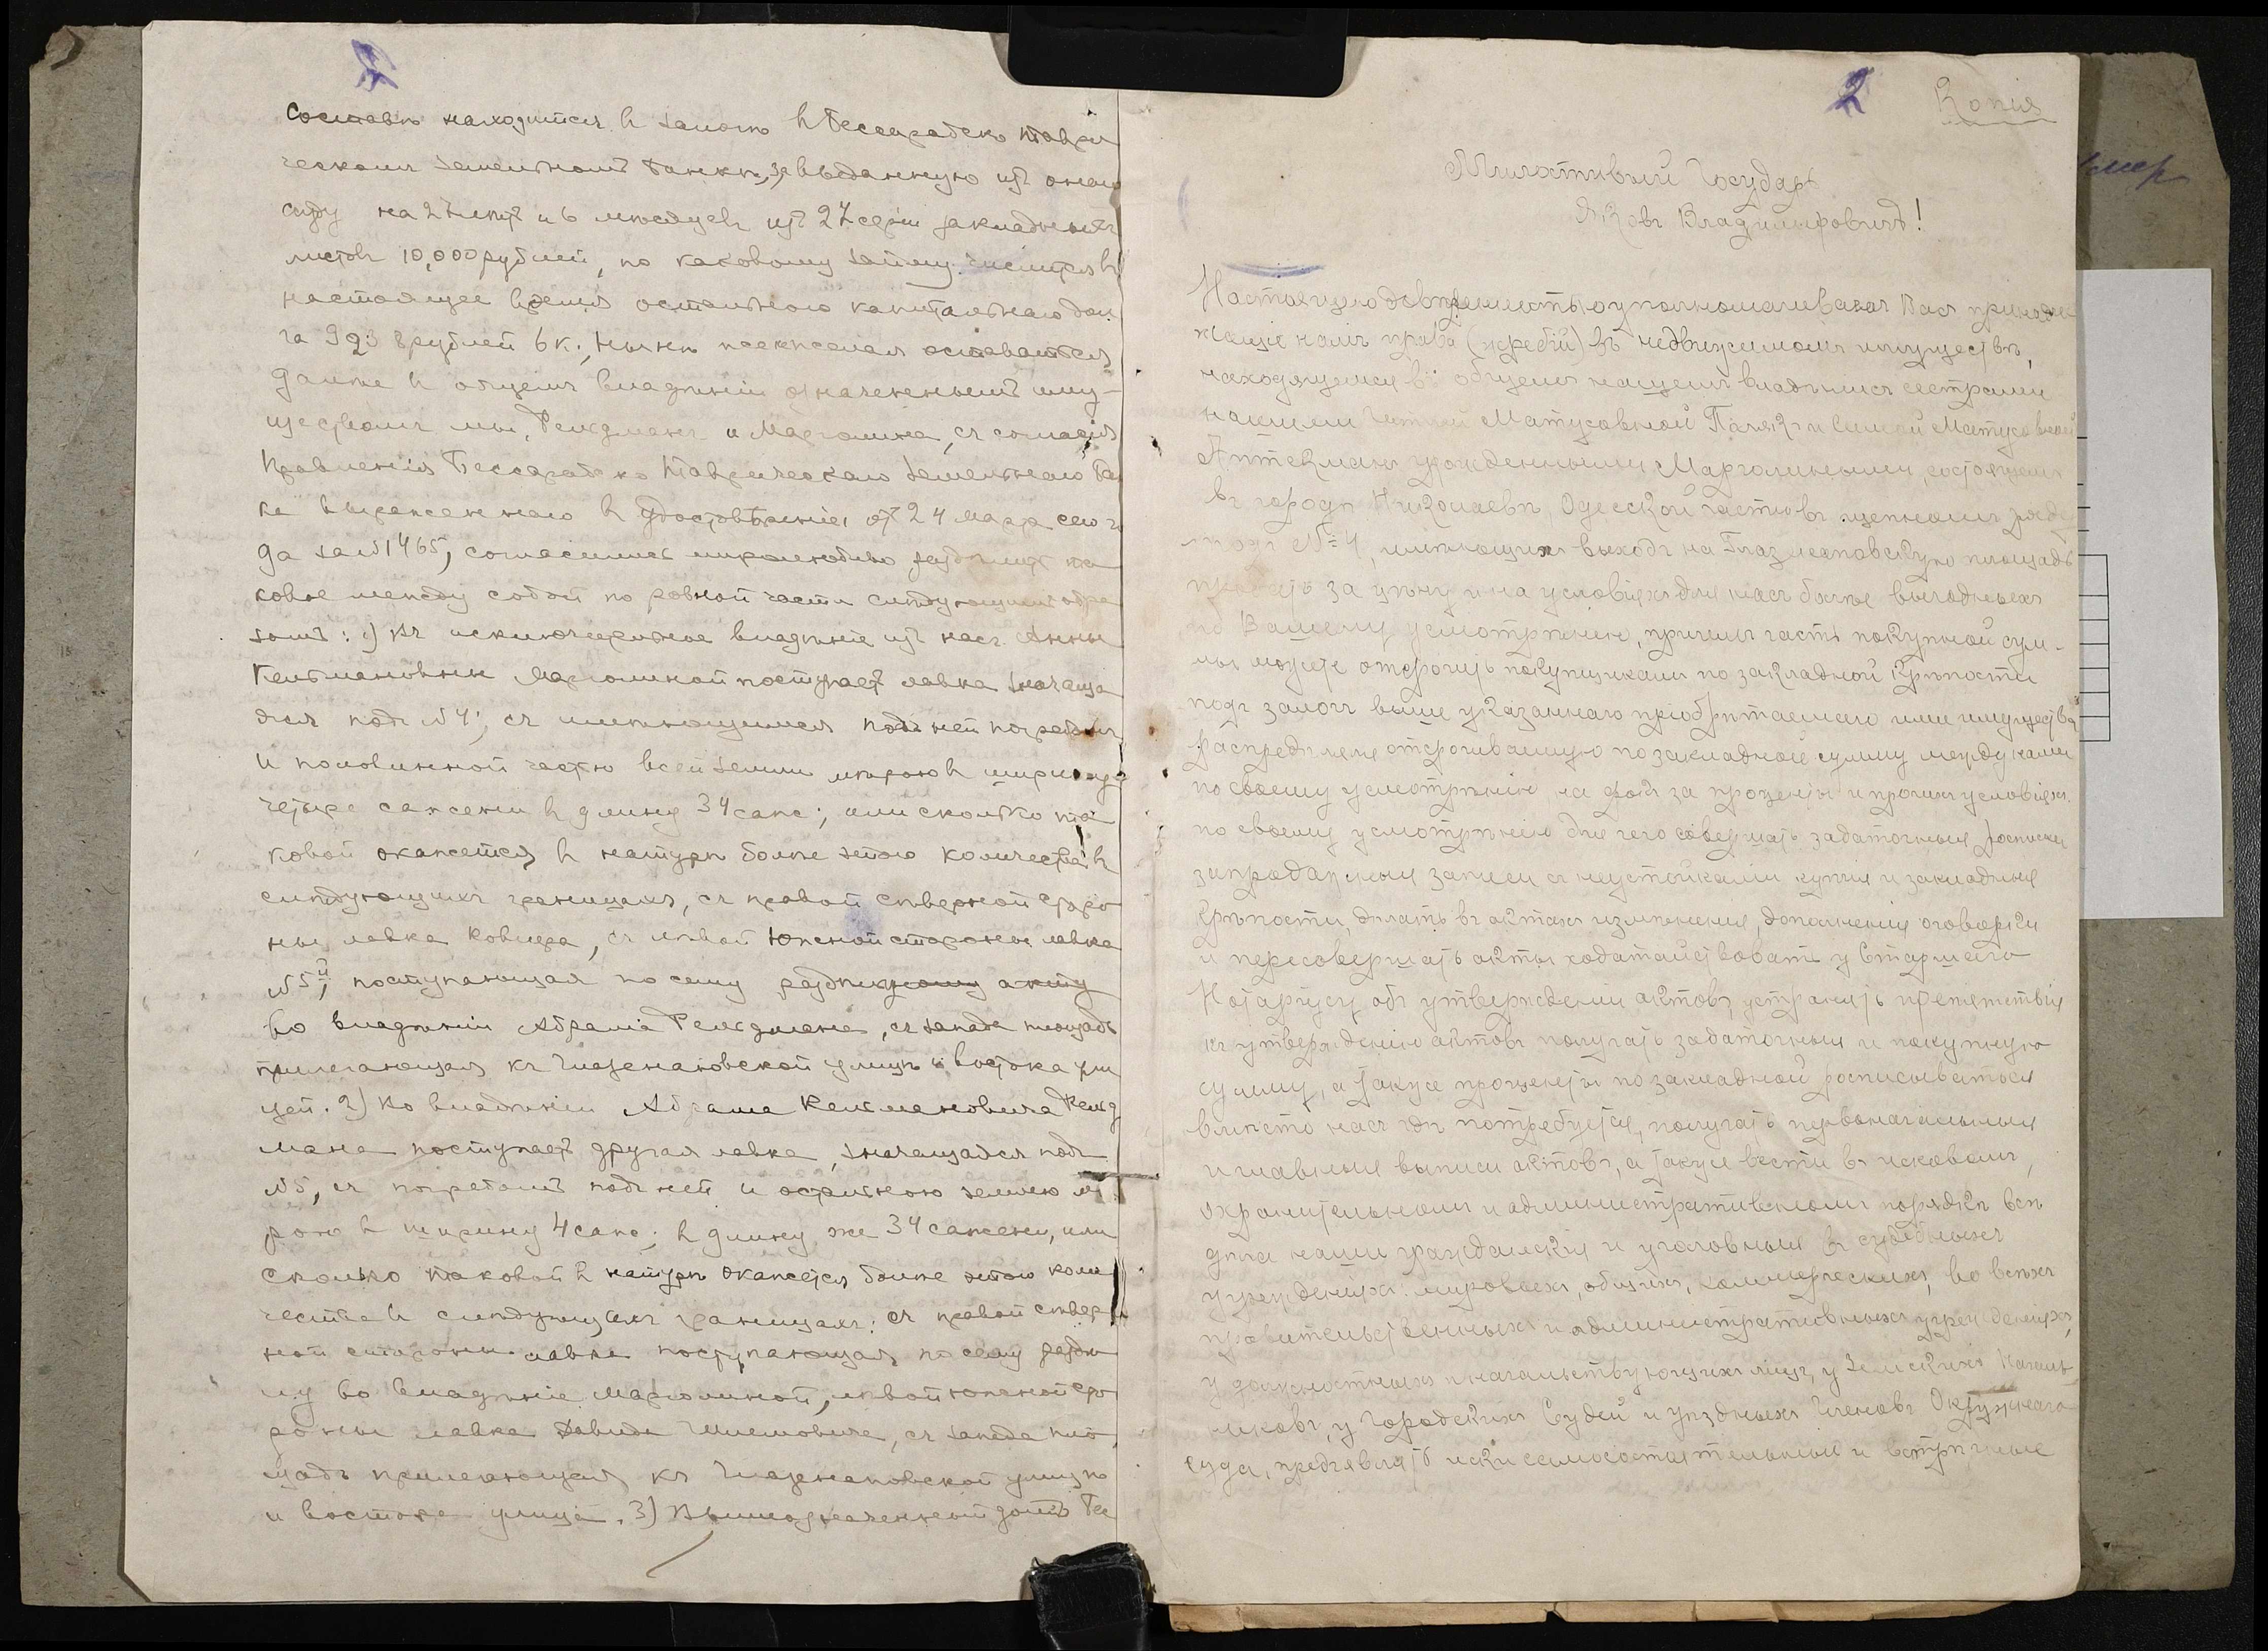 составѣ находится въ залогѣ въ Бессарабско Таври
ческомъ земельномъ банкѣ, за выданную изъ онаго
ссуду на 27 лѣтъ и 6 мѣсяцевъ изъ 27 серіи закладныхъ
листовъ 10,000 рублей, по каковому займу числится въ
настоящее время остальнаго капитальнаго дол
га рублей 6 к.; нынѣ не желая оставаться
далѣе въ общемъ владѣніи означеннымъ иму-
ществомъ мы, Фельдманъ и Марголина, съ согласія
Правленія Бессарабско Таврическаго земельнаго Бан
ка выраженнаго въ удостовѣреніи отъ 24 марта сего го
да за №1465, согласились миролюбиво раздѣлить та
ковое между собой по ровной части слѣдующимъ обра
зомъ: 1) Въ исключительное владѣніе изъ насъ Анны
Кельмановны Марголиной поступаетъ лавка значаща
яся подъ №4, съ имѣющимся подъ ней погребомъ
и половинной частью всей земли мѣрою въ ширину
четыре сажени въ длину 34 саж; или сколько та
ковой окажется въ натурѣ болѣе этого количества въ
слѣдующихъ границахъ, съ правой сѣверной сторо
ны лавка, съ лѣвой южной стороны лавка
№5й, поступающая по сему раздѣльному акту
во владѣніи Абрама Фельдмана, съ запада площадь
прилегающая къ Глазенаповской улицѣ и востока ули
цей. 2) Во владѣніи Абрама Кельмановича Фельд
мана поступаетъ другая лавка, значащаяся подъ
№5, съ погребомъ подъ ней и остальною землею мѣ
рою въ ширину 4 саж; въ длину же 34 сажени, или
сколько таковой въ натурѣ окажется болѣе этого коли
чества въ слѣдующихъ границахъ: съ правой сѣвер
ной стороны лавка поступающая по сему раздѣ
лу во владѣніе Марголиной, лѣвой южной сто
роны лавка Давида, съ запада пло
щадь прилегающая къ Глазенаповской улицѣ
и востока улица. 3) Вышеозначенный долгъ Бес
2
Копія
Милостивый Государь
Яковъ Владиміровичъ!
Настоящею довѣренностью уполномачиваемъ Васъ принадле
жащіе намъ права (жребіи) въ недвижимомъ имуществѣ,
находящемся въ общемъ нашемъ владѣніи съ сестрами
нашими Матусовной и Матусовной
Аптекманъ урожденными Марголиными, состоящемъ
въ городѣ Николаевѣ, Одесской части въ щепномъ ряду
подъ №4, имѣющихъ выходъ на Глазенаповскую площадь
продать за цѣну и на условіяхъ для насъ болѣе выгодныхъ
по Вашему усмотрѣнію, причемъ часть покупной сум-
мы можете отсрочить покупщикамъ по закладной крѣпости
подъ залогъ выше указаннаго пріобрѣтаемаго ими имущества
распредѣляя отсрочиваемую по закладной сумму между нами
по своему усмотрѣнію на за проценты и прочихъ условіяхъ
по своему усмотрѣнію для чего совершать задаточныя росписки
запродажныя записи съ неустойками купчія и закладныя
крѣпости, дѣлать въ актахъ измѣненія, дополненія оговорки
и пересовершать акты ходатайствовать у Старшаго
Нотаріуса объ утвержденіи актовъ, устранять препятствія
къ утвержденію актовъ получать задаточныя и покупную
сумму, а также проценты по закладной росписываться
вмѣсто насъ гдѣ потребуется, получать первоначальныя
и главныя выписи актовъ, а также вести въ исковомъ,
охранительномъ и административномъ порядкѣ всѣ
дѣла наши гражданскія и уголовныя въ судебныхъ
учрежденіяхъ: мировыхъ, общихъ, коммерческихъ, во всѣхъ
правительственныхъ и административныхъ учрежденіяхъ,
у должностныхъ и начальствующихъ лицъ, у Земскихъ Началь
никовъ, у Городскихъ Судей и уѣздныхъ Членовъ Окружнаго
Суда, предъявлять иски самостоятельные и встрѣчные